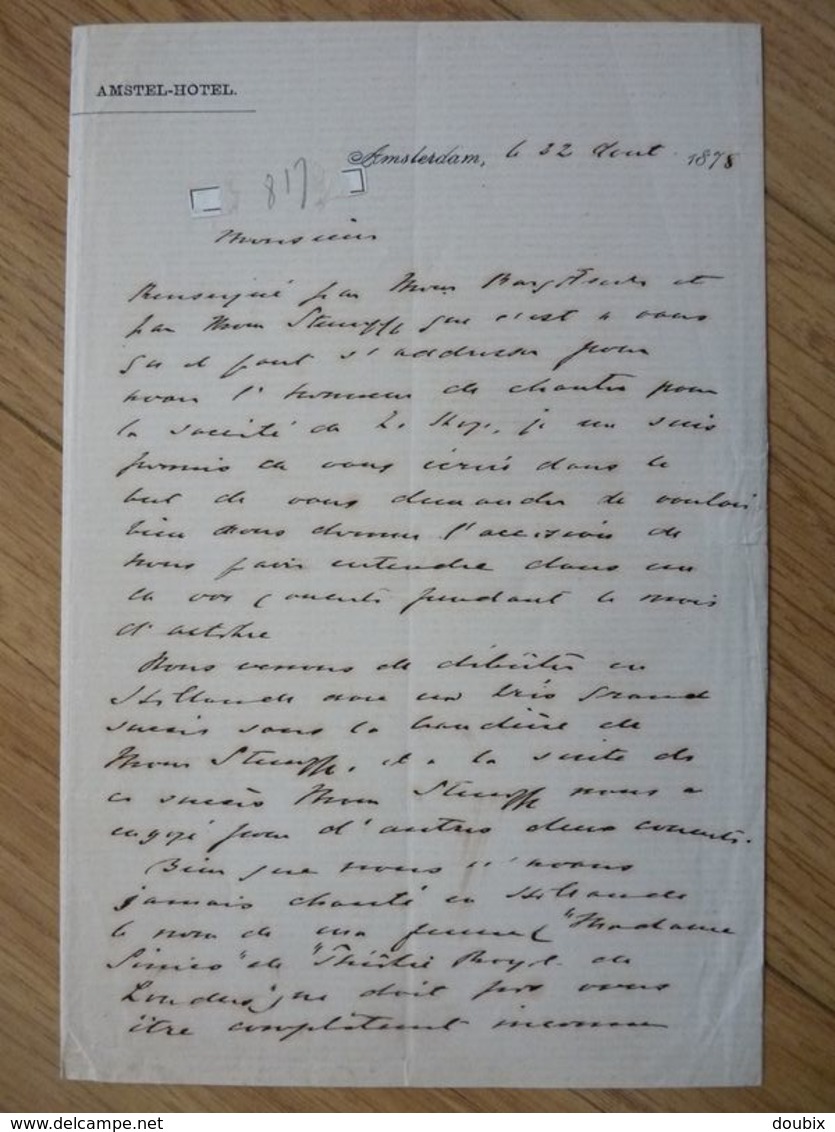 AMSTEL-HOTEL.
Amsterdam, le 22 Aout 1878
817
Monsieur
Renseigné par Mons et
par Mons Stumpff que c'est a vous
qu il faut s'addresser pour
avoir l'honneur de chanter pour
la société de La Haye, je me suis
permis de vous écrire dans le
but de vous demander de vouloir
bien nous donner l'occasion de
nous faire entendre dans un
de vos Concerts pendant le mois
d'octobre
Nous venons de débûter en
Hollande avec un très grand
succès sous la de
Mons Stumpff, et a la suite de
ce succès Mons Stumpff nous a
engagé pour d'autres deux concerts.
Bien que nous n'avons
jamais chanté en Hollande
le nom de ma femme "Madame
Sinico" de "Théâtre Royl. de
Londres" ne doit pas vous
être complètement inconnu
delcampe.net
doubix